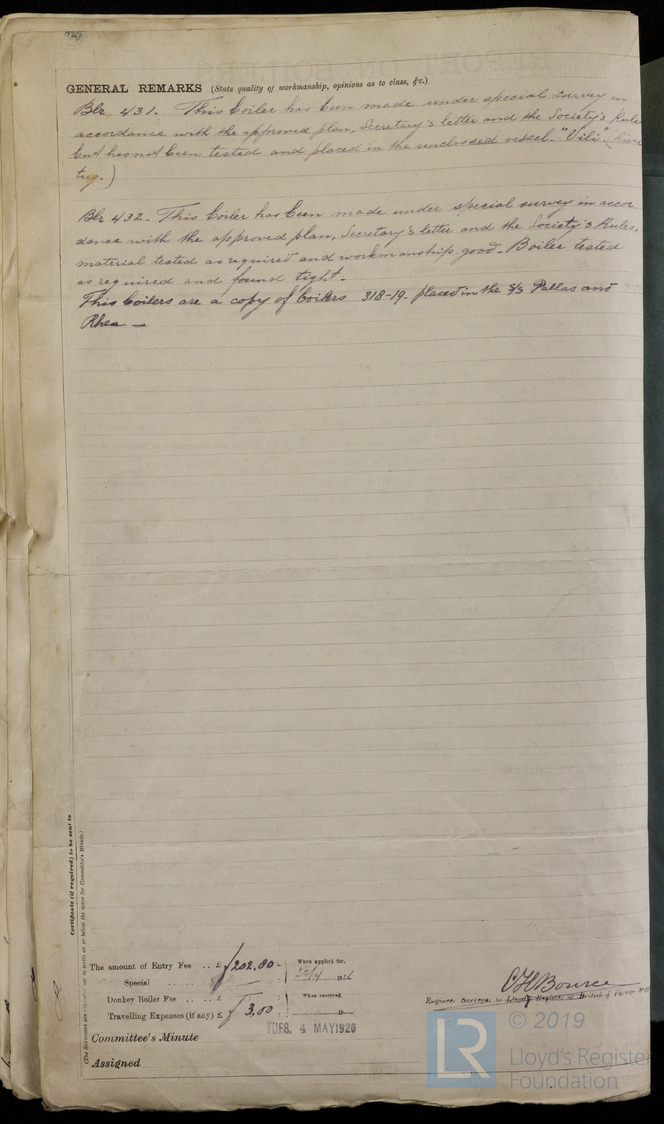 GENERAL REMARKS (State quality of workmanship, opinions as to class, &c.)
Blr 431. This boiler has been made under special survey in
accordance with the approved plan, Secretary's letter and the Society's Rules
but has not been tested and placed in the unclassed vessel "Vili". (River
tug.)
Blr 432 - This boiler has been made under special survey in accor
dance with the approved plan, Secretary's letter and the Society's Rules,
material tested as required and workmanship good. Boiler tested
as required and found tight.
This boilers are a copy of boilers 318-19. placed in the S/S Pallas and
Rhea —
Certificate (if required) to be sent to
The amount of Entry Fee .. £ f 202.00 :
Special .. £
Donkey Boiler Fee .. £
Travelling Expenses (if any) £ f 3.00 :
When applied for,
22/4 1926
When received,
19
C H Bource
Engineer Surveyor to Lloyd's Register of British & Foreign
TUES. 4 MAY 1926
Committee's Minute
Assigned
LR
© 2019
Lloyd's Register
Foundation